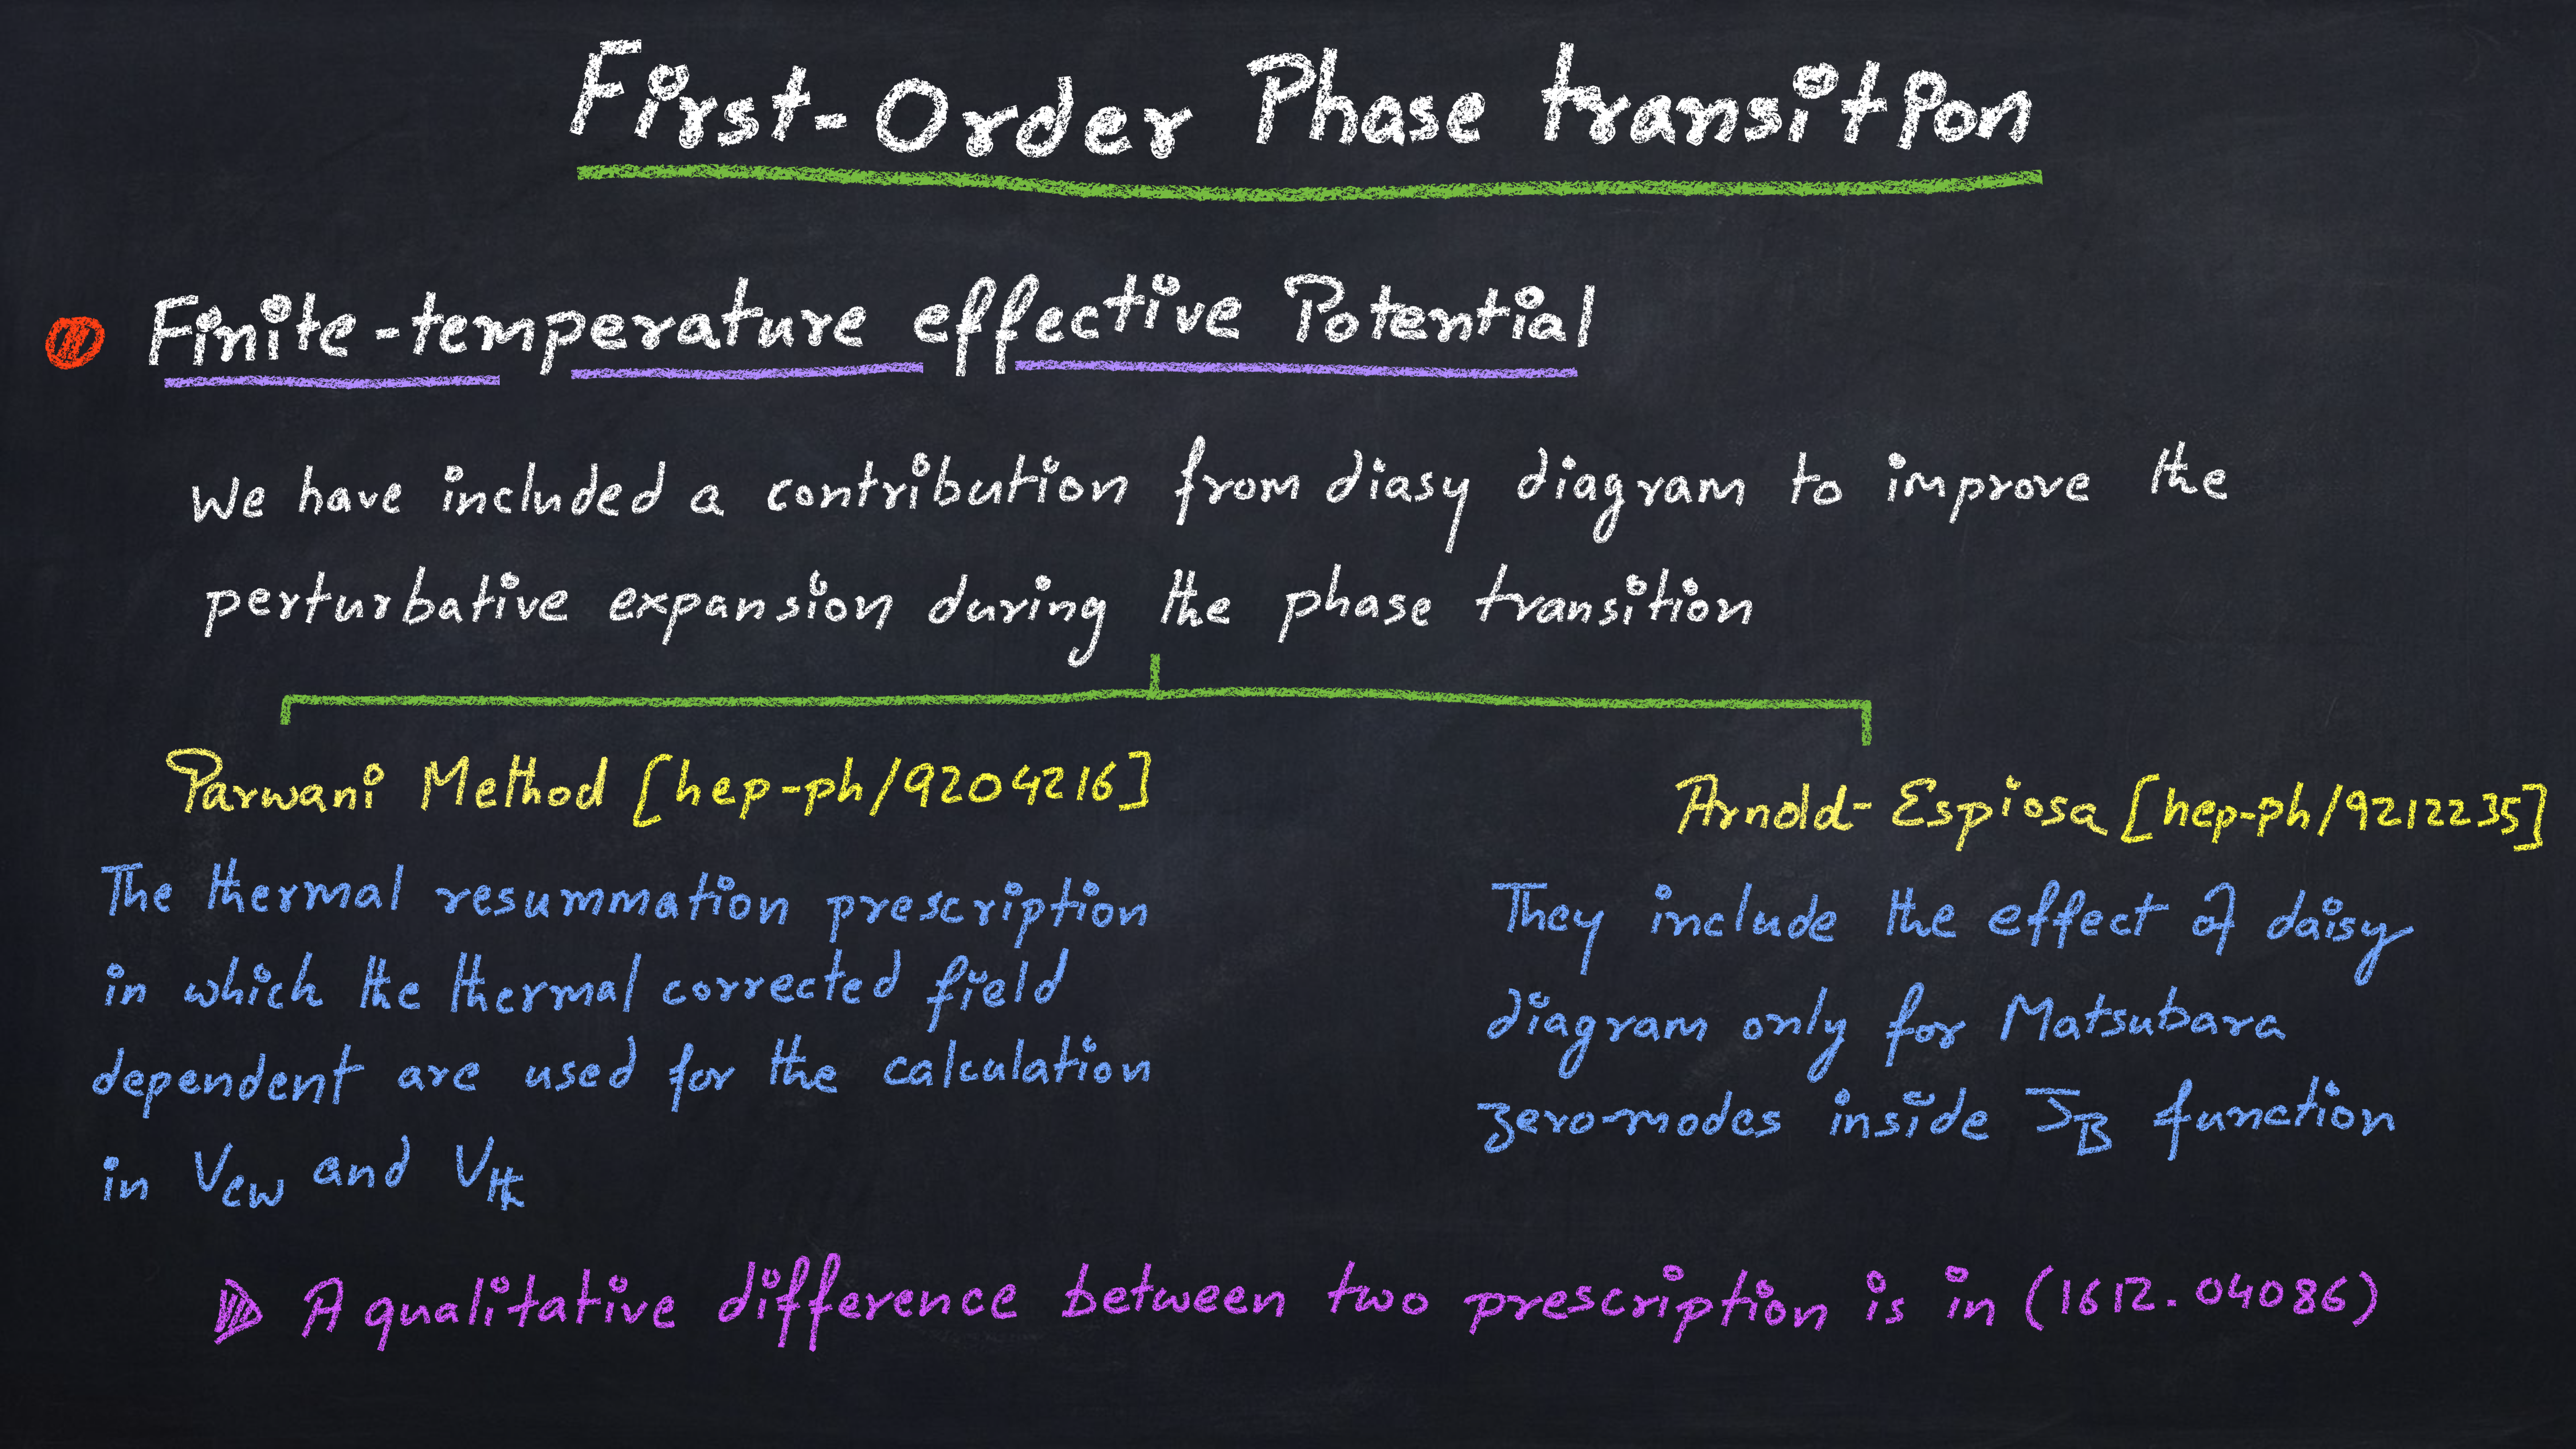 First-Order Phase transition
Finite-temperature effective Potential
We have included a contribution from diasy diagram to improve the
perturbative expansion during the phase transition
Parwani Method [hep-ph/9204216]
The thermal resummation prescription
in which the thermal corrected field
dependent are used for the calculation
in V_CW and V_th
Arnold-Espiosa [hep-ph/9212235]
They include the effect of daisy
diagram only for Matsubara
zero-modes inside J_B function
A qualitative difference between two prescription is in (1612.04086)